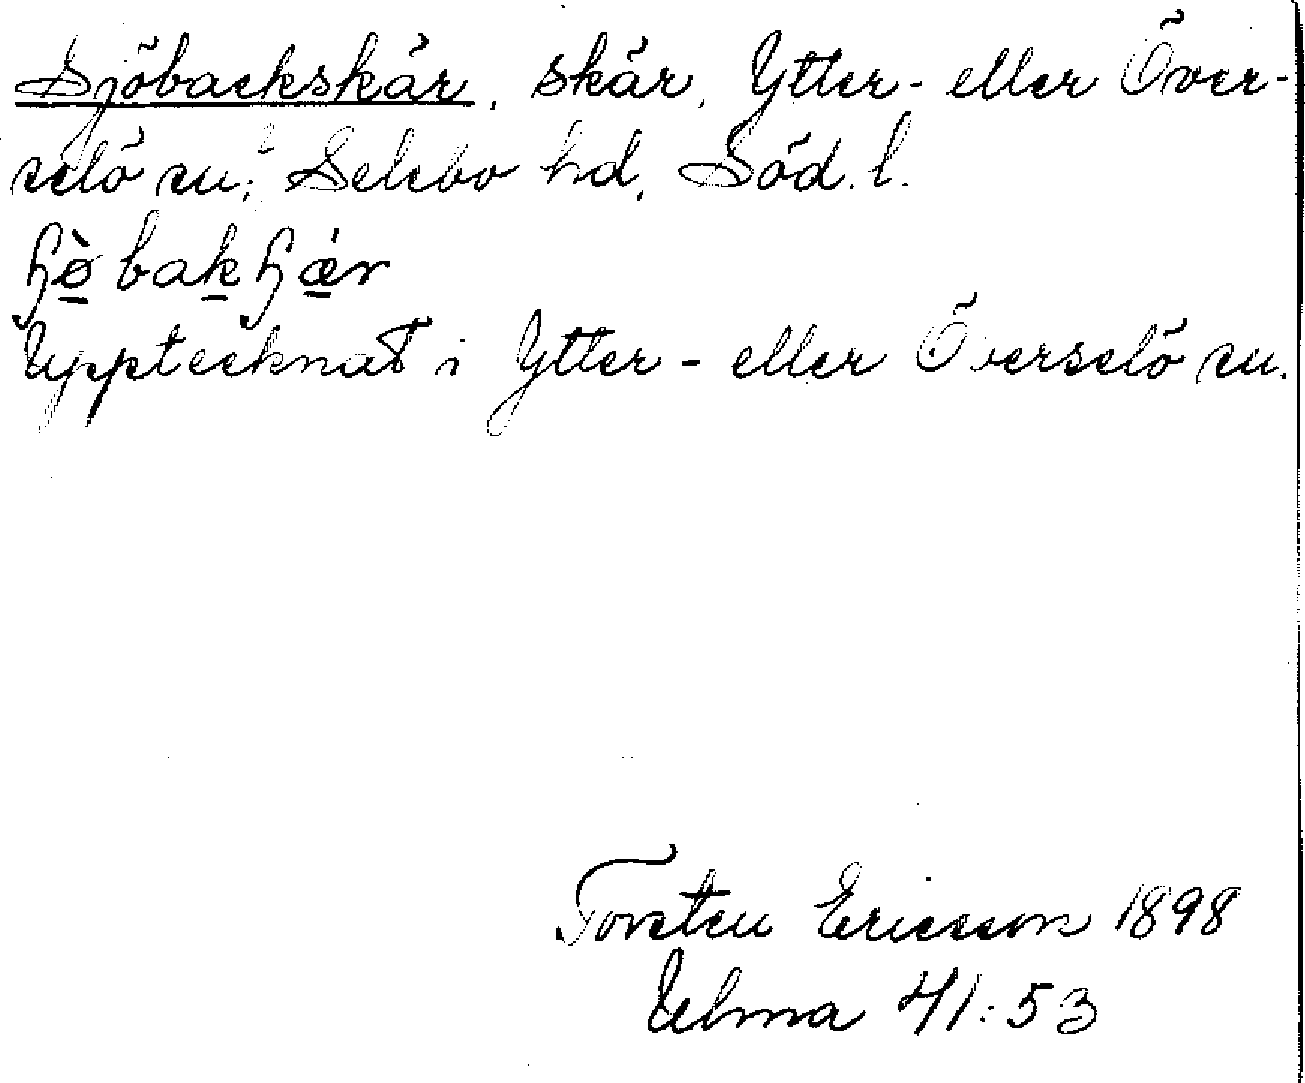 Sjöbackskär, skär, Ytter- eller Över-
selö sn; Selebo hd, Söd. l.
ɧø̀bakɧæ̀r
Upptecknat i Ytter- eller Överselö sn.
Torsten Ericsson 1898
Ulma 41:53